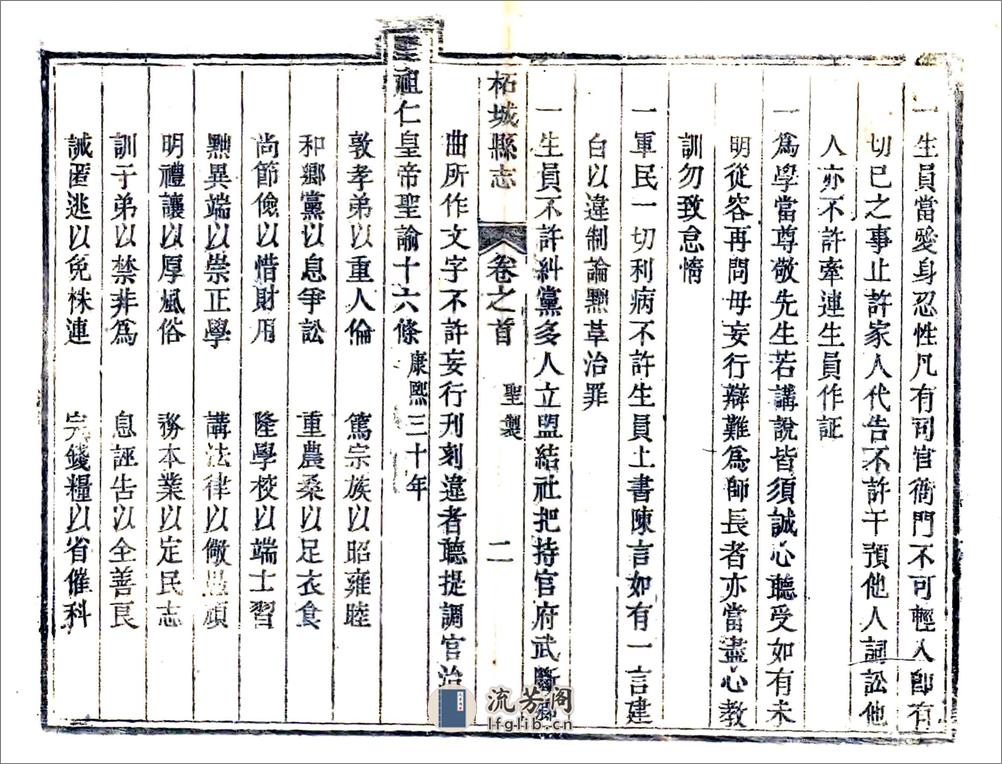 一生員當愛身忍性凡有司官衙門不可輕入卽有
切已之事止許家人代告不許干預他人詞訟他
人亦不許牽連生員作証
一爲學當尊敬先生若講說皆須誠心聽受如有未
明從容再問毋妄行辯難爲師長者亦當盡心教
訓勿致怠惰
一軍民一切利病不許生員上書陳言如有一言建
白以違制論黜革治罪
一生員不許糾黨多人立盟結社把持官府武斷鄉
柘城縣志 卷之首 聖製 二
曲所作文字不許妄行刋刻違者聽提調官治
聖祖仁皇帝聖諭十六條康熙三十年
敦孝弟以重人倫 篤宗族以昭雍睦
和鄉黨以息爭訟 重農桑以足衣食
尚節儉以惜財用 隆學校以端士習
黜異端以崇正學 講法律以儆愚頑
明禮讓以厚風俗 務本業以定民志
訓子弟以禁非爲 息誣告以全善良
誡匿逃以免株連 完錢糧以省催科
流芳阁
lfglib.cn